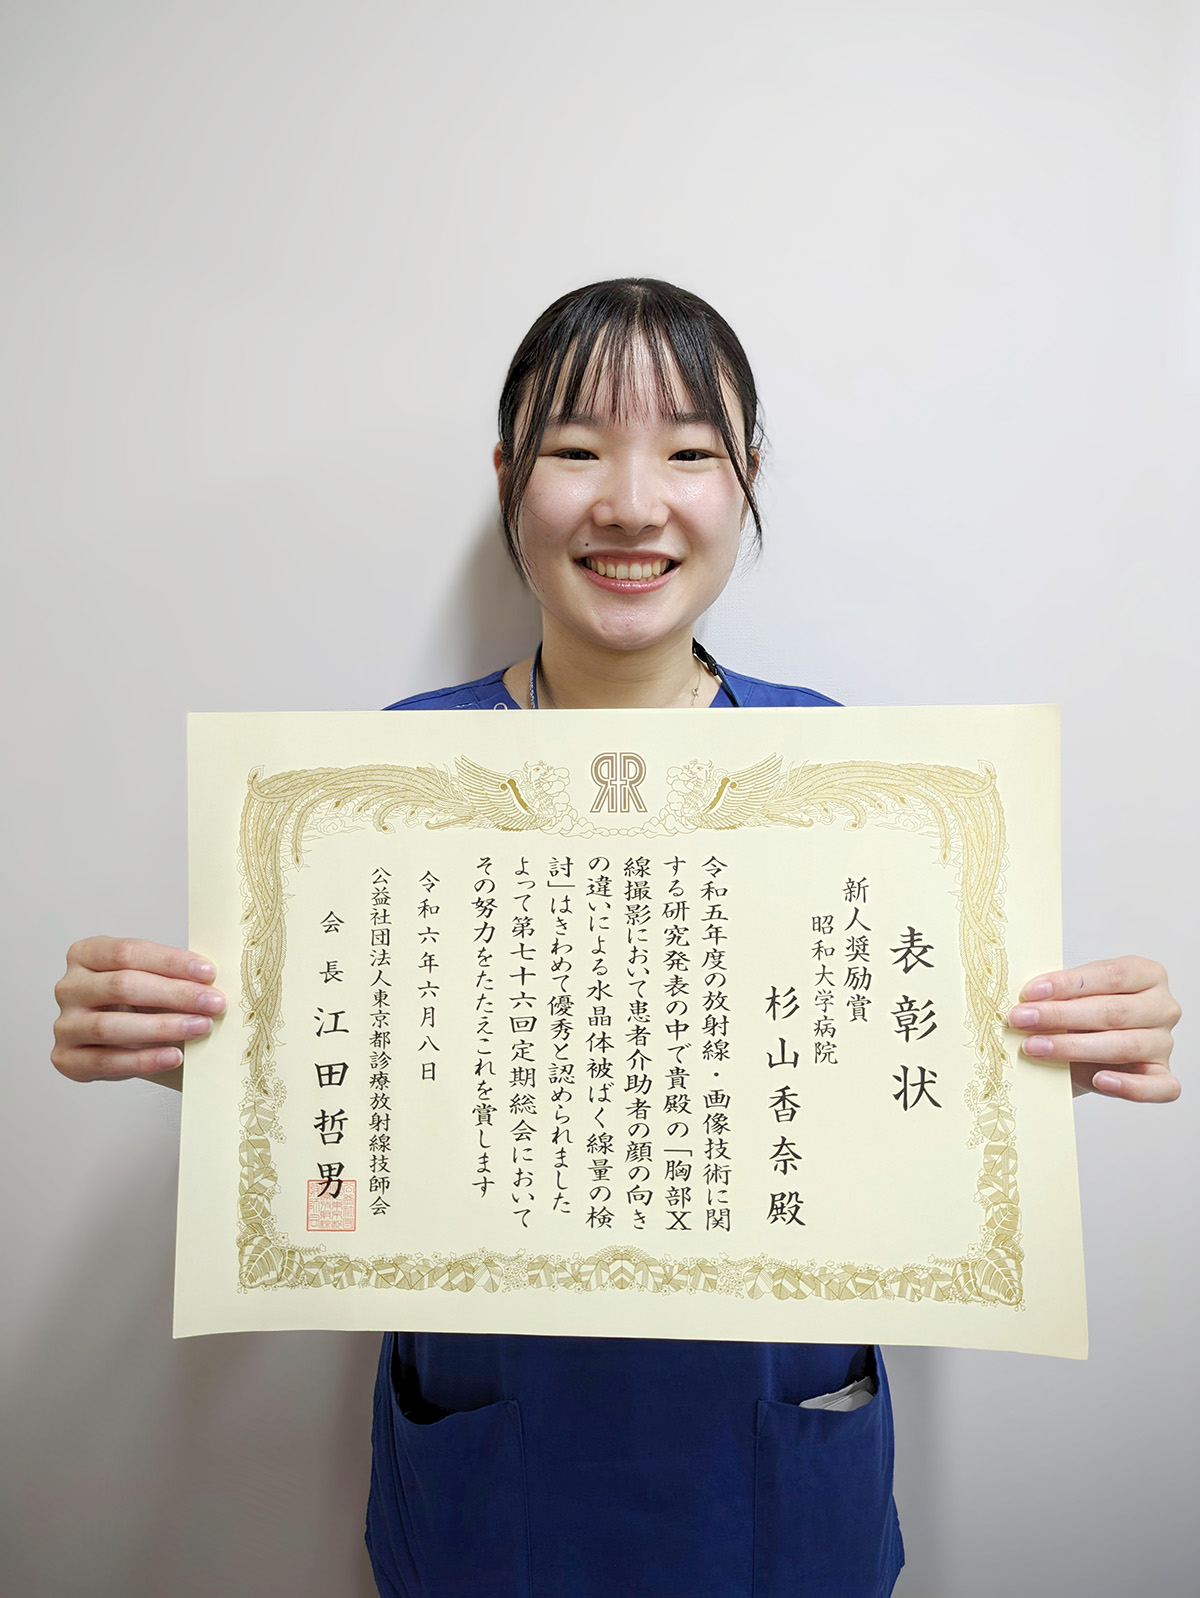 表彰状
新人奨励賞
昭和大学病院
杉山香奈殿
令和五年度の放射線・画像技術に関
する研究発表の中で貴殿の「胸部X
線撮影において患者介助者の顔の向き
の違いによる水晶体被ばく線量の検
討」はきわめて優秀と認められました
よって第七十六回定期総会において
その努力をたたえこれを賞します
令和六年六月八日
公益社団法人東京都診療放射線技師会
会長 江田哲男